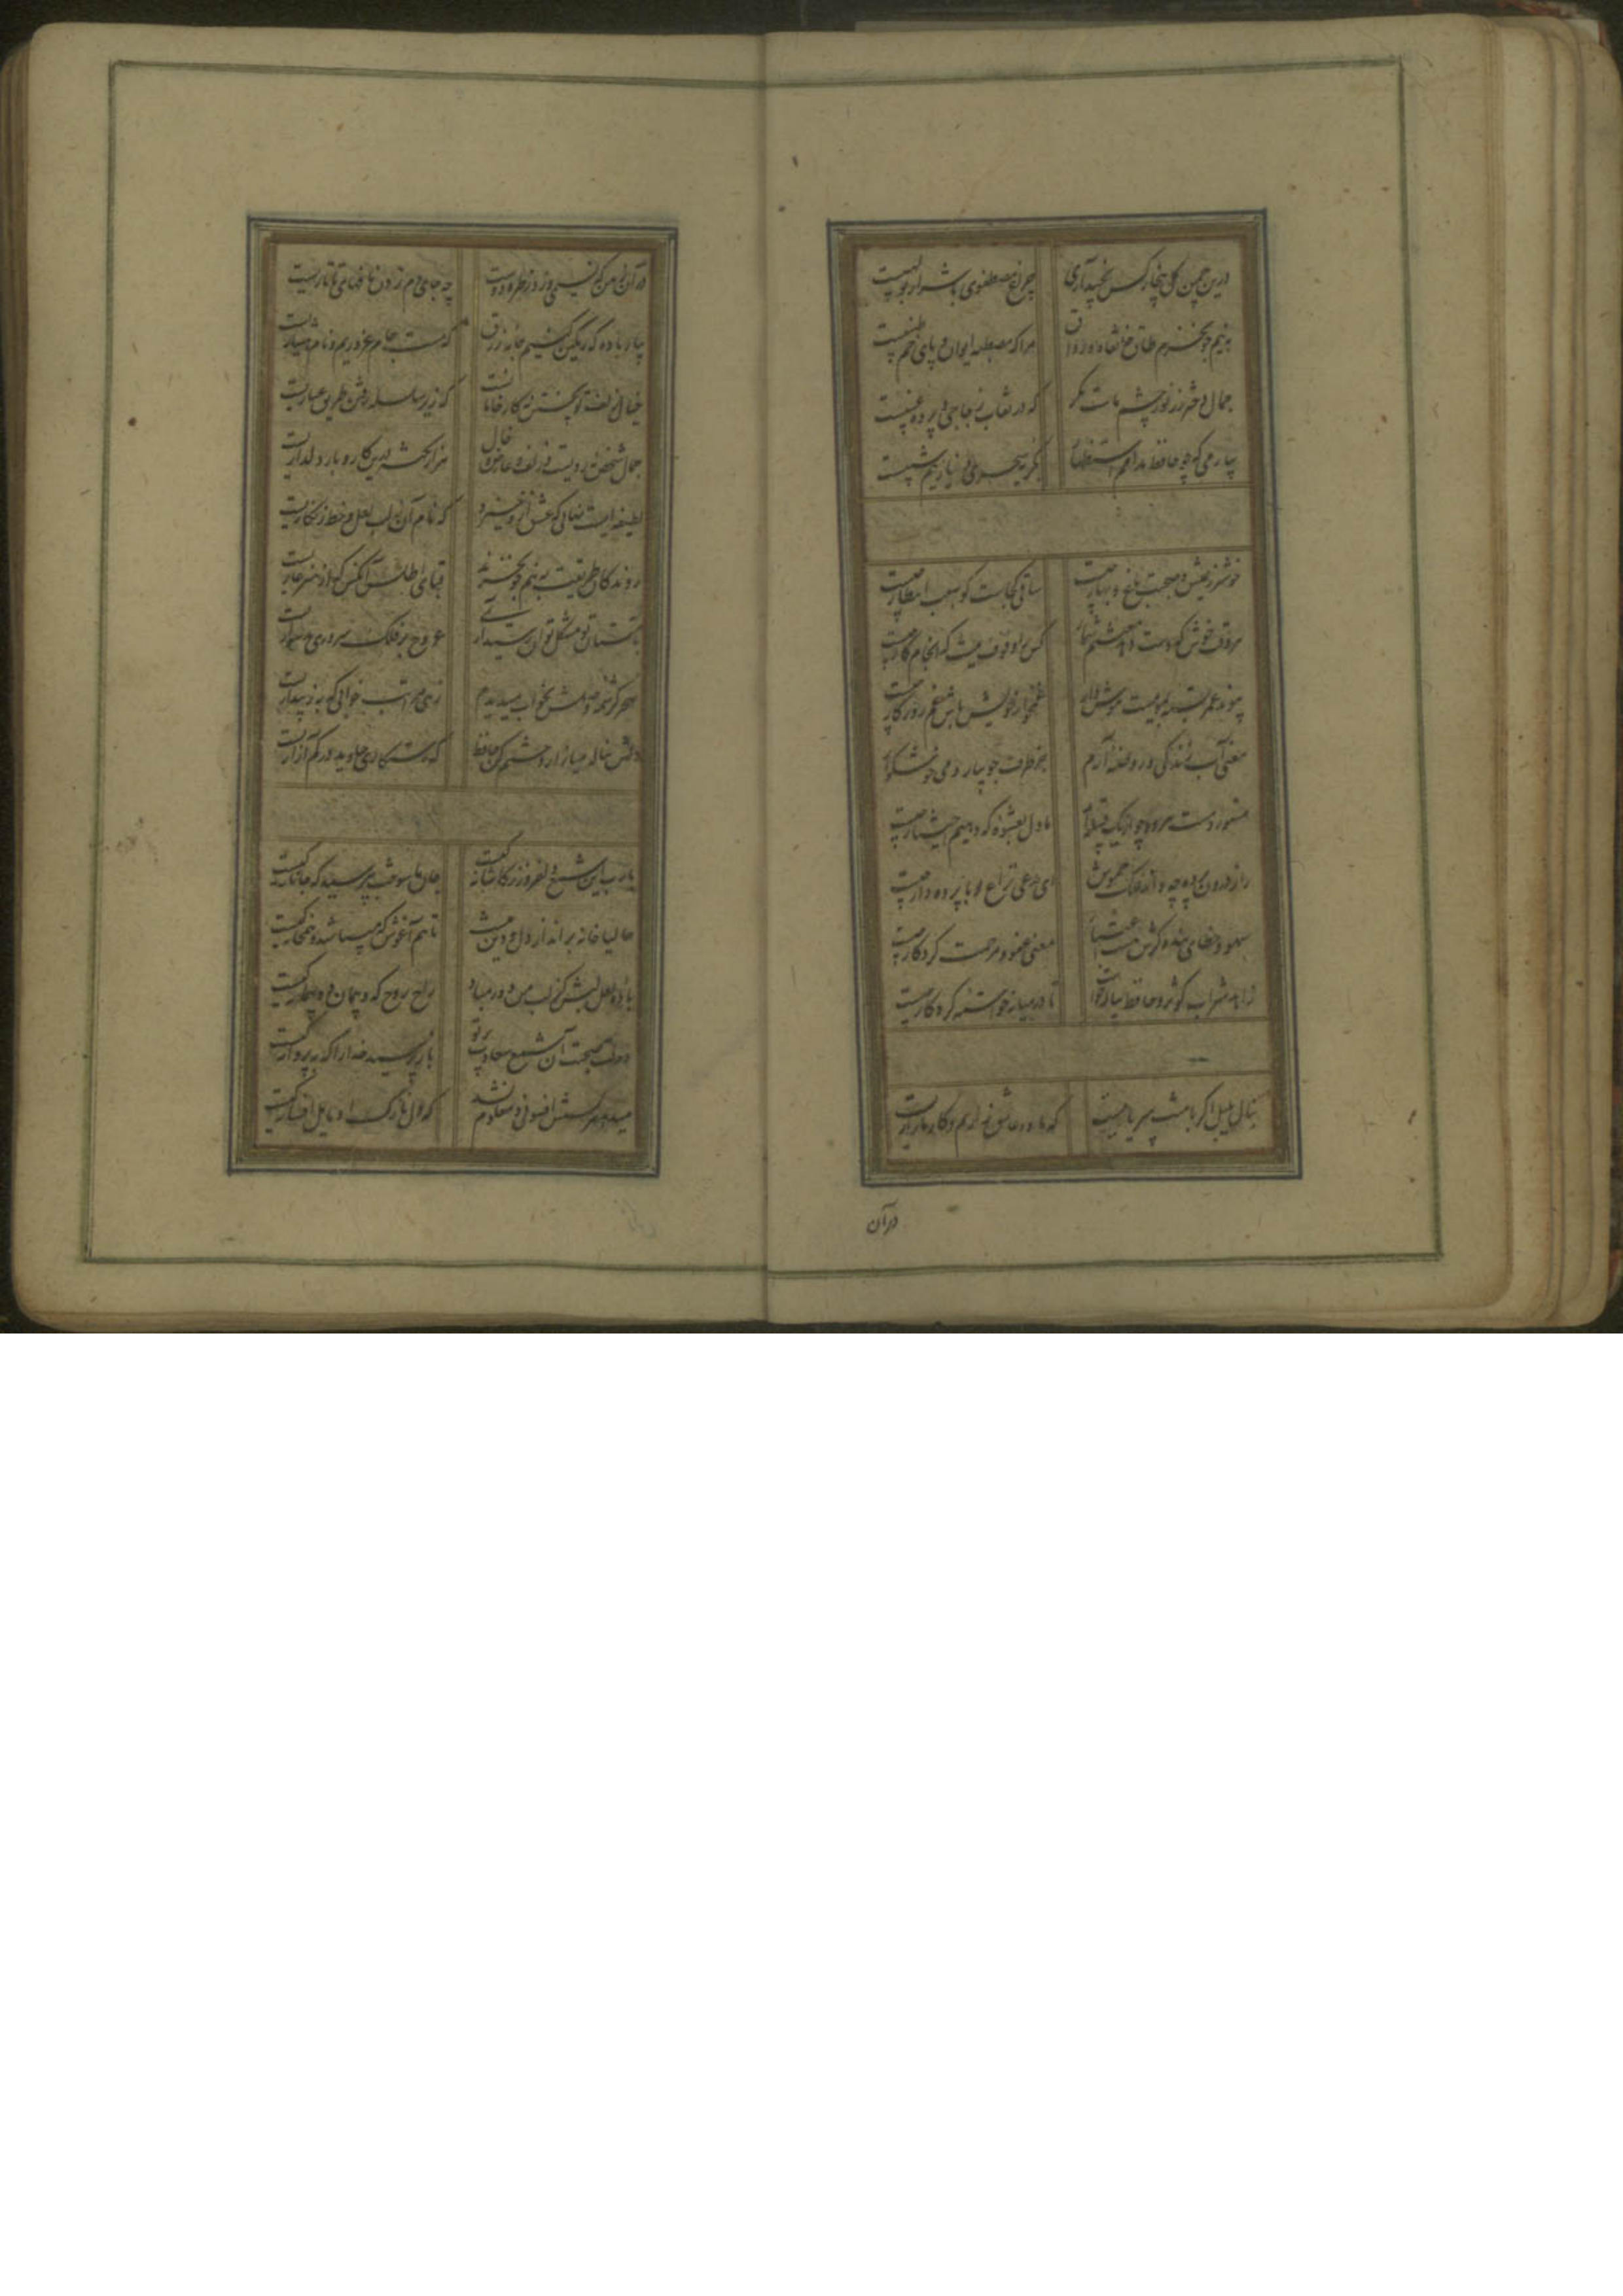 درین چمن گل بیخار کس نچید آری چراغ مصطفوی با شرار بولهبیست
به نیم جو نخرم طاق خانقاه و رواق مرا که مصطبه ایوان و پای خم طنبیست
جمال دختر رز نور چشم ماست مگر که در نقاب زجاجی و پرده عنبیست
بیار می که چو حافظ مدامم استظهار بگریه سحری و نیاز نیم شبیست
خوشتر ز عیش و صحبت باغ و بهار چیست ساقی کجاست گو سبب انتظار چیست
هر وقت خوش که دست دهد مغتنم شمار کس را وقوف نیست که انجام کار چیست
پیوند عمر بسته بموییست هوش دار غمخوار خویش باش غم روزگار چیست
معنی آب زندگی و روضه ارم جز طرف جویبار و می خوشگوار چیست
مستور و مست هر دو چو از یک قبیله‌اند ما دل بعشوه که دهیم اختیار چیست
راز درون پرده چه داند فلک خموش ای مدعی نزاع تو با پرده دار چیست
سهو و خطای بنده گرش هست اعتبار معنی عفو و رحمت کردگار چیست
زاهد شراب کوثر و حافظ پیاله خواست تا در میانه خواسته کردگار چیست
بنال بلبل اگر با منت سر یاریست که ما دو عاشق زاریم و کار ما زاریست
درآن
در آن زمین که نسیمی وزد ز طره دوست چه جای دم زدن نافهای تاتاریست
بیار باده که رنگین کنیم جامه زرق که مست جام غروریم و نام هشیاریست
خیال زلف تو پختن نه کار خامانست که زیر سلسله رفتن طریق عیاریست
جمال شخص نه رویست و زلف و عارض و خال هزار نکته درین کار و بار دلداریست
لطیفه ایست نهانی که عشق ازو خیزد که نام آن نه لب لعل و خط زنگاریست
روندگان طریقت به نیم جو نخرند قبای اطلس آنکس که از هنر عاریست
بر آستان تو مشکل توان رسید آری عروج بر فلک سروری بدشواریست
سحر کرشمه وصلش بخواب میدیدم زهی مراتب خوابی که به ز بیداریست
دلش بناله میازار و ختم کن حافظ که رستگاری جاوید در کم آزاریست
یارب این شمع دلفروز ز کاشانه کیست جان ما سوخت بپرسید که جانانه کیست
حالیا خانه برانداز دل و دین منست تا هم آغوش که میباشد و همخانه کیست
باده لعل لبش کز لب من دور مباد راح روح که و پیمان ده پیمانه کیست
دولت صحبت آن شمع سعادت پرتو باز پرسید خدا را که به پروانه کیست
میدهد هر کسش افسونی و معلوم نشد که دل نازک او مایل افسانه کیست